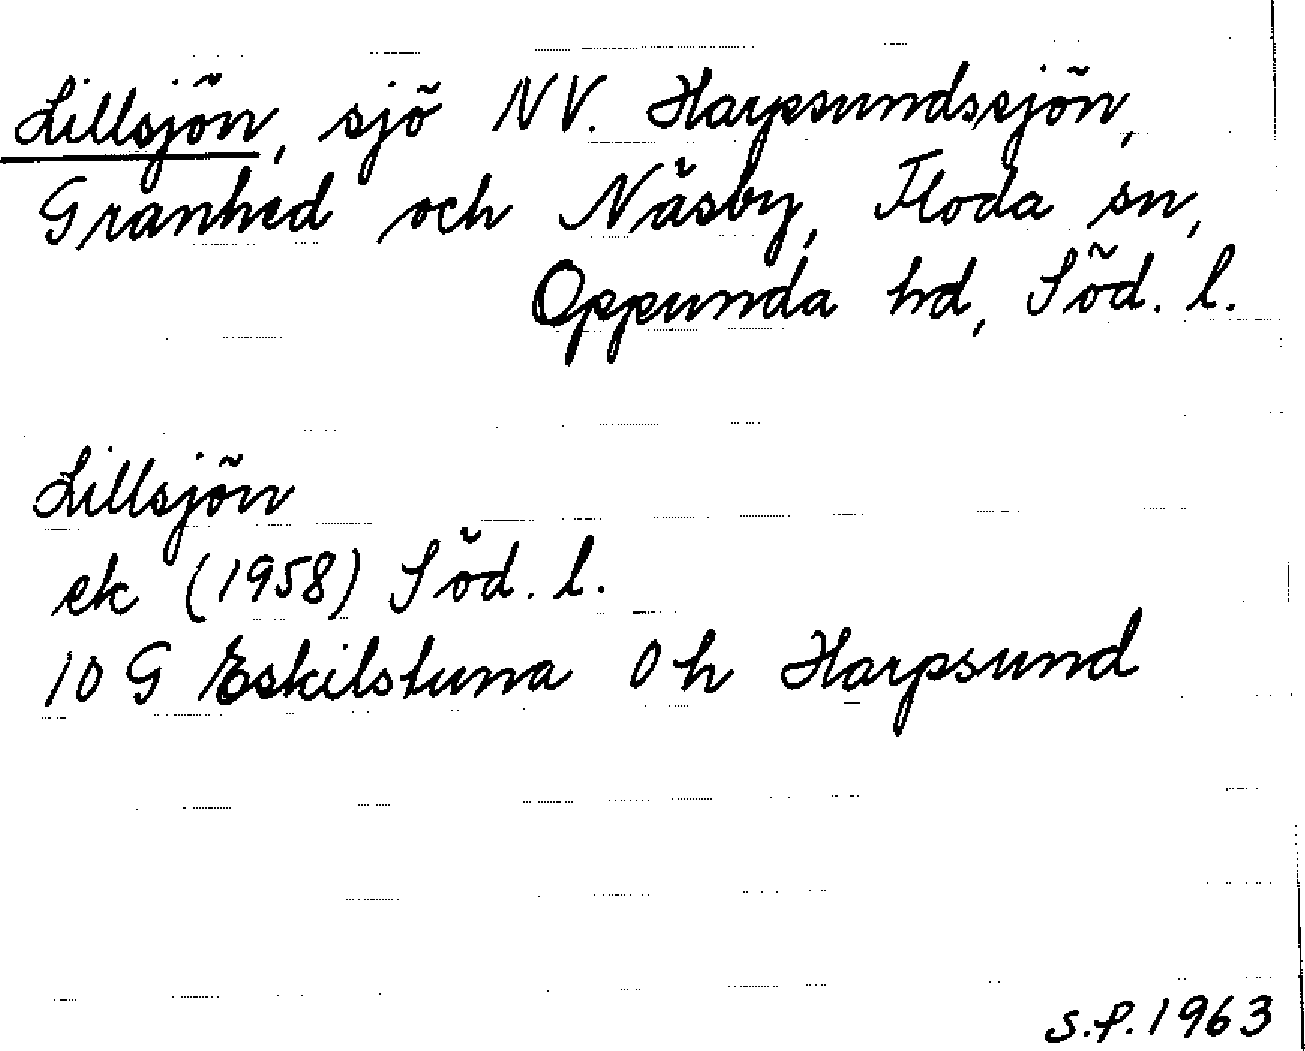 Lillsjön, sjö NV. Harpsundssjön,
Granhed och Näsby, Floda sn,
Oppunda hd, Söd. l.
Lillsjön
ek (1958) Söd. l.
10 G Eskilstuna 0 h Harpsund
S.P. 1963